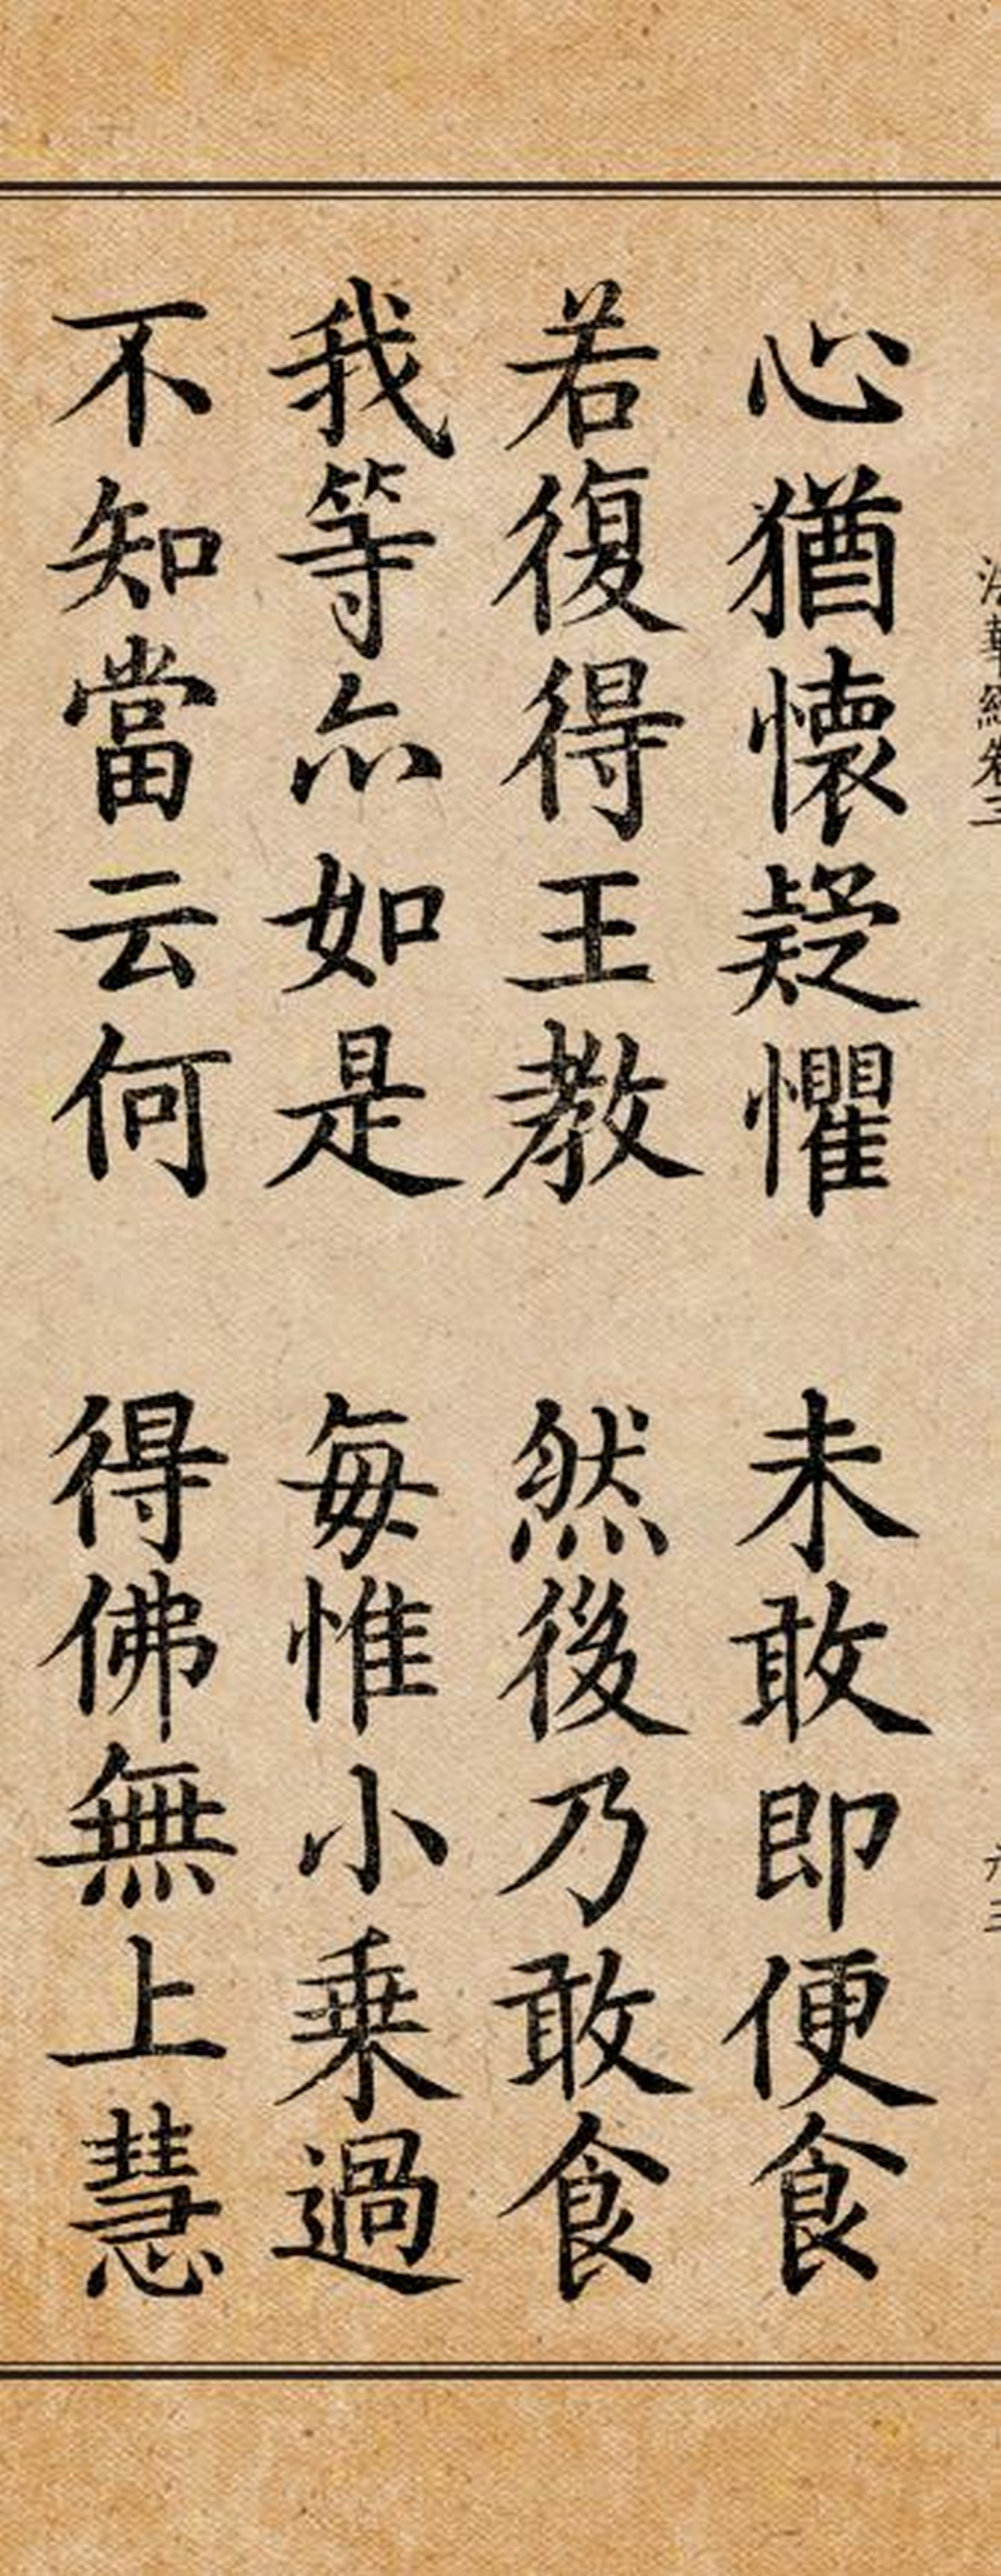 法華經卷三
六
三
心猶懷疑懼 未敢即便食
若復得王教 然後乃敢食
我等亦如是 每惟小乘過
不知當云何 得佛無上慧